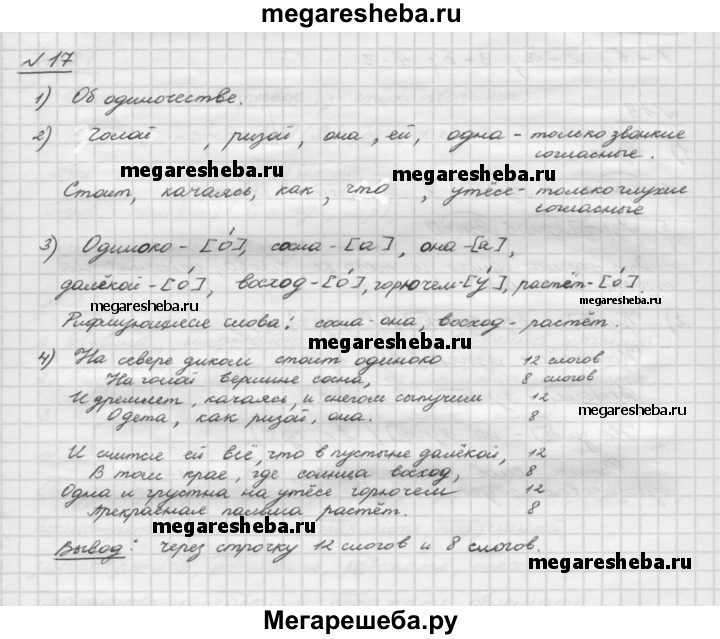 megaresheba.ru
№17
1) Об одиночестве.
2) Голой , ризой, она, ей, одна - только звонкие
согласные.
megaresheba.ru
megaresheba.ru
Стоит, качаясь, как, что , утёсе - только глухие
согласные
3) Одиноко - [о́], сосна - [а́], она - [а́],
далёкой - [о́], восход - [о́], горючем - [у́], растёт - [о́].
megaresheba.ru
megaresheba.ru
Рифмующиеся слова: сосна - она, восход - растёт.
megaresheba.ru
4) На севере диком стоит одиноко 12 слогов
На голой вершине сосна, 8 слогов
И дремлет, качаясь, и снегом сыпучим 12
Одета, как ризой, она. 8
megaresheba.ru
И снится ей всё, что в пустыне далёкой, 12
В том крае, где солнца восход, 8
Одна и грустна на утёсе горючем 12
Прекрасная пальма растёт. 8
megaresheba.ru
megaresheba.ru
Вывод: через строчку 12 слогов и 8 слогов.
Мегарешеба.ру